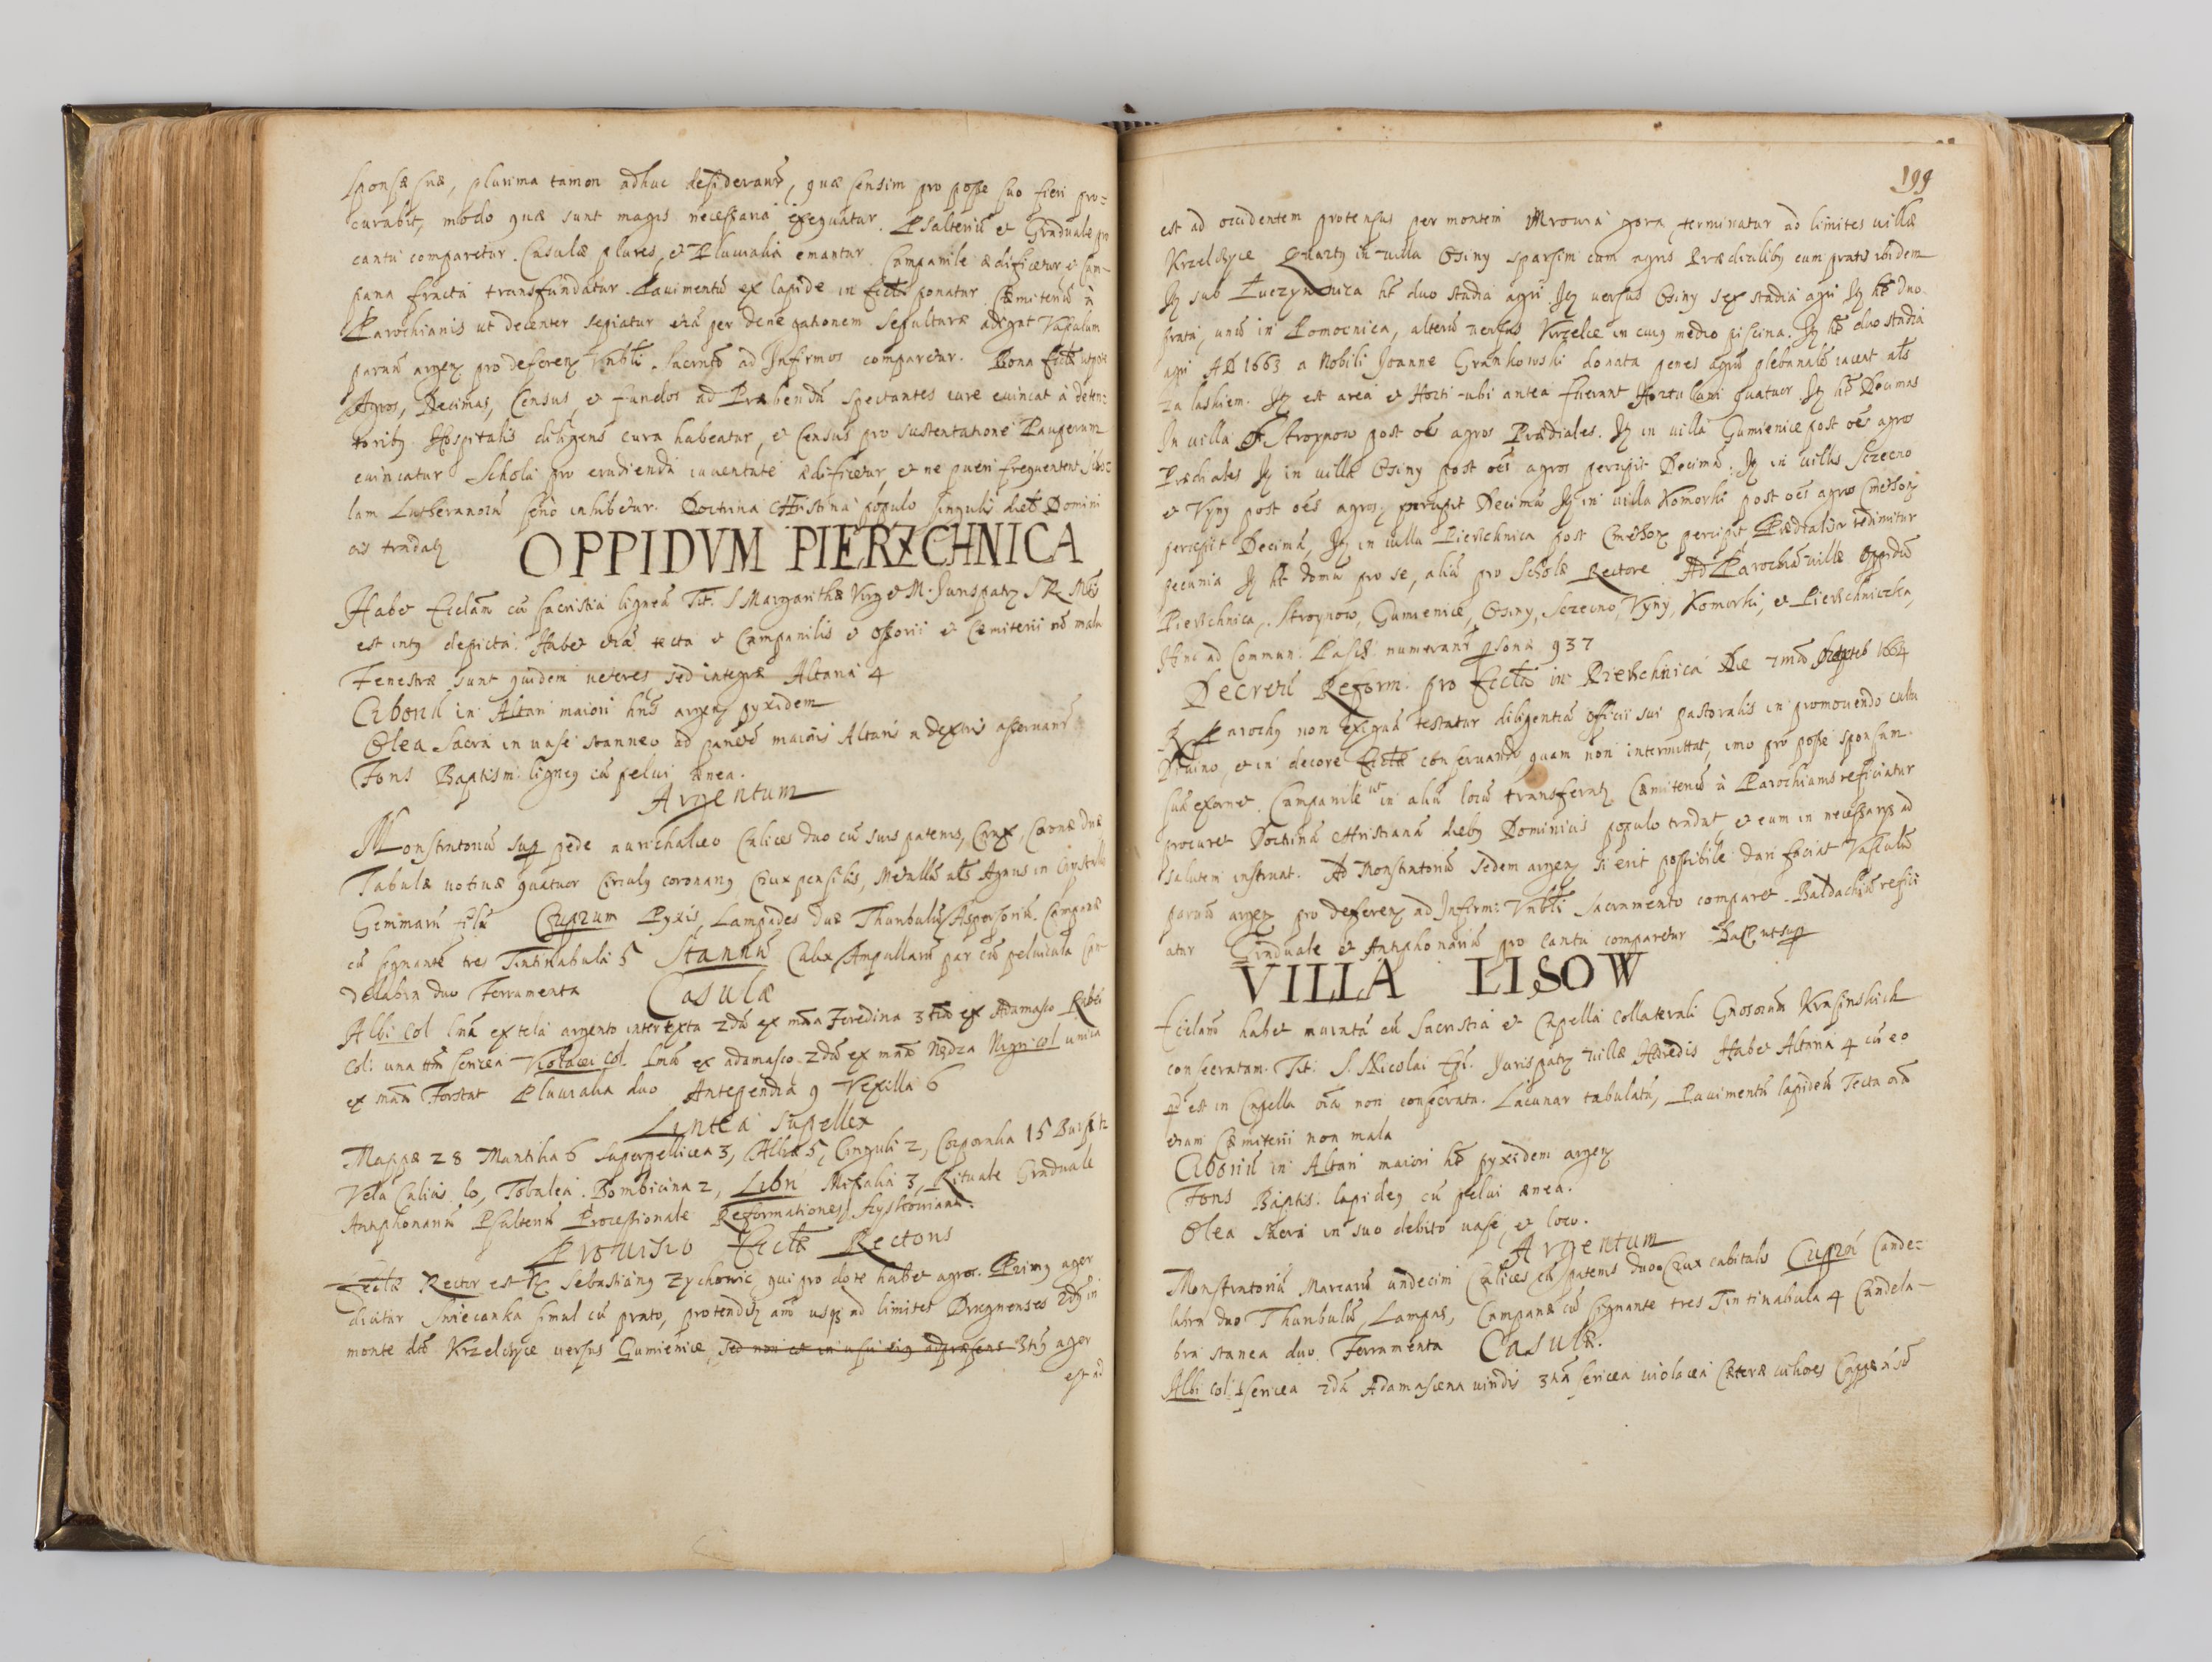 sponsæ suæ, plurima tamen adhuc desiderantr, quæ sensim pro posse suo fieri pro=
curabit, modo quæ sunt magis necessaria exequatur. Psalteriũ et Graduale pro
cantu comparetur. Casulæ plures, et Pluvialia emantur. Campanile ædificetur et Cam-
pana fracta transfundatur. Pavimentũ ex lapide in Eccla ponatur. Cæmiteriũ à
Parochianis ut decenter sepiatur etiã per denegationem sepulturæ adigat Vasculum
parvũ argen pro deferen Vnbli Sacrnto ad Infirmos comparetur. Bona Ecclæ utpote
Agros, Decimas, Census, et fundos ad Præbendã spectantes iure evincat à deten=
toribg Hospitalis diligens cura habeatur, et Census pro sustentatione Pauperum
evincatur Schola pro erudienda iuventute ædificetur, et ne pueri frequentent scho=
lam Lutheranorũ serio inhibetur. Doctrina Christiana populo singulis dieb Domini
cis tradatz
OPPIDVM PIERZCHNICA
Habet Ecclam cũ sacristia ligneã Tit. S Margarithæ Virg et M. Jurispatz S R Mtis
est intg depicta. Habet etiã tecta et Campanilis et Ossorii et Cæmiterii nõ mala
Fenestræ sunt quidem veteres sed integræ Altaria 4
Ciboriũ in Altari maiori hns argen pyxidem
Olea Sacra in vase stanneo ad parietẽ maioris Altaris a dextris asservantr
Fons Baptism: ligneg cũ pelvi ænea.
Argentum
Monstratoriũ sup pede aurichalceo Calices duo cũ suis patenis, Crux, Coronæ duæ
Tabulæ votivæ quatuor Circulg coronang Crux pensilis, Metallũ als Agnus in Cristallo
Gemmarũ fila Cuprum Pyxis, Lampades duæ Thuribulũ Aspersoriũ. Campanæ
cũ signante tres Tintinabula 5 Stannũ Calix Ampullarũ par cũ pelvicula Can-
delabra duo Ferramenta Casulæ
Albi Col una ex tela argento intertexta 2da ex mãa Feredina 3tia ex Adamasco Rubei
Col: una ttm sericea Violacei Col. una ex adamasco 2da ex mãa Nędza Nigri col unica
ex mãa Forstat Pluvialia duo Antependia 9 Vexilla 6
Lintea Supellex
Mappæ 28 Mantilia 6 Superpellicea 3, Albæ 5, Cinguli 2, Corporalia 15 Bursæ 12
Vela Calicis 10, Tobalea Bombicina 2, Libri Missalia 3, Rituale Graduale
Antiphonariũ Psalteriũ Processionale Reformationes Szyszkowiana.
Provisio Ecclæ Rectoris
Ecclæ Rector est Sebastiang Zychowic qui pro dote habet agros. Primg ager
dicitur Swiecanka simul cũ prato, protenditz usq ad limites Drugnenses 2dg in
monte dcto Krzelczyce versus Gumienice, sed non est in usu eig ad præsens 3tig ager
est ad
199
est ad occidentem protensus per montem Mrowia gora terminatur ad limites villæ
Krzelczyce Quartg in villa Osiny sparsim cum agris Prædialibg cum pratis ibidem
Itz sub Łuczynnica ht duo stadia agri Itz versus Osiny sex stadia agri Itz ht duo
prata, unũ in Pomocnica, alterũ versus Krzelce in cuig medio piscina. Itz ht duo stadia
agri AD 1663 a Nobili Joanne Grankowski donata penes agrũ plebanalẽ iacent als
za laskiem. Itz est area et Horti ubi antea fuerant Hortulani quatuor Itz ht Decimas
In villa Stroynow post oẽs agros Prædiales. Itz in villa Gumienice post oẽs agros
Prædiales Itz in villa Osiny post oẽs agros percipit Decimã. Itz in villis Sczecno
et Vyny post oẽs agros, percipit Decimã Itz in villa Komorki post oẽs agros Cmethon
percipit Decimã, Itz in villa Pierschnica post Cmethon percipit Prædialia redimitur
pecunia Itz ht domũ pro se, aliã pro Scholæ Rectore Ad Parochiã villæ Oppidũ
Pierschnica, Stroynow, Gumienice, Osiny, Sczecno, Vyny, Komorki, et Pierschniczka,
Hinc ad Commun: Pasch: numerantr psonæ 937
Decretũ Reform. pro Eccla in Pierschnica Die 7ma Septeb 1664
Parochg non exiguã testatur diligentiã officii sui pastoralis in promovendo cultu
Divino, et in decore Ecclæ conservando quam non intermittat, imo pro posse sponsam
suã exornet. Campanile ut in aliũ locũ transferatz Cæmiteriũ à Parochianis reficiatur
procuret Doctrinã Christianã diebg Dominicis populo tradat, et eum in necessariis ad
salutem instruat. Ad Monstratoriũ sedem argen si erit possibile dari faciat Vasculũ
parvũ argen pro deferen ad Infirm: Vnbli Sacramento comparet. Baldachinũ refici
atur Graduale et Antiphonariũ pro Cantu comparetur ut sup
VILLA LISOW
Ecclam habet muratã cũ Sacristia et Capella collaterali Gnosorum Krasinskich
consecratam. Tit. S. Nicolai Epi. Jurispatz villæ Hæredis Habet Altaria 4 cũ eo
qd est in Capella oĩa non consecrata. Lacunar tabulatũ, Pavimentũ lapideũ Tecta oĩa
etiam Cæmiterii non mala
Ciboriũ in Altari maiori ht pyxidem argen
Fons Baptis: lapideg cũ pelvi ænea.
Olea Sacra in suo debito vase et loco.
Argentum
Monstratoriũ Marcarũ undecim Calices cũ patenis duo Crux cubitalis Cuprã Cande=
labra duo Thuribulũ, Lampas, Campanæ cũ signante tres Tintinabula 4 Candela-
bra stanea duo. Ferramenta Casulæ.
Albi col: 1 sericea 2da Adamascena viridis 3tia sericea violacea Cæteræ viliores Cappæ